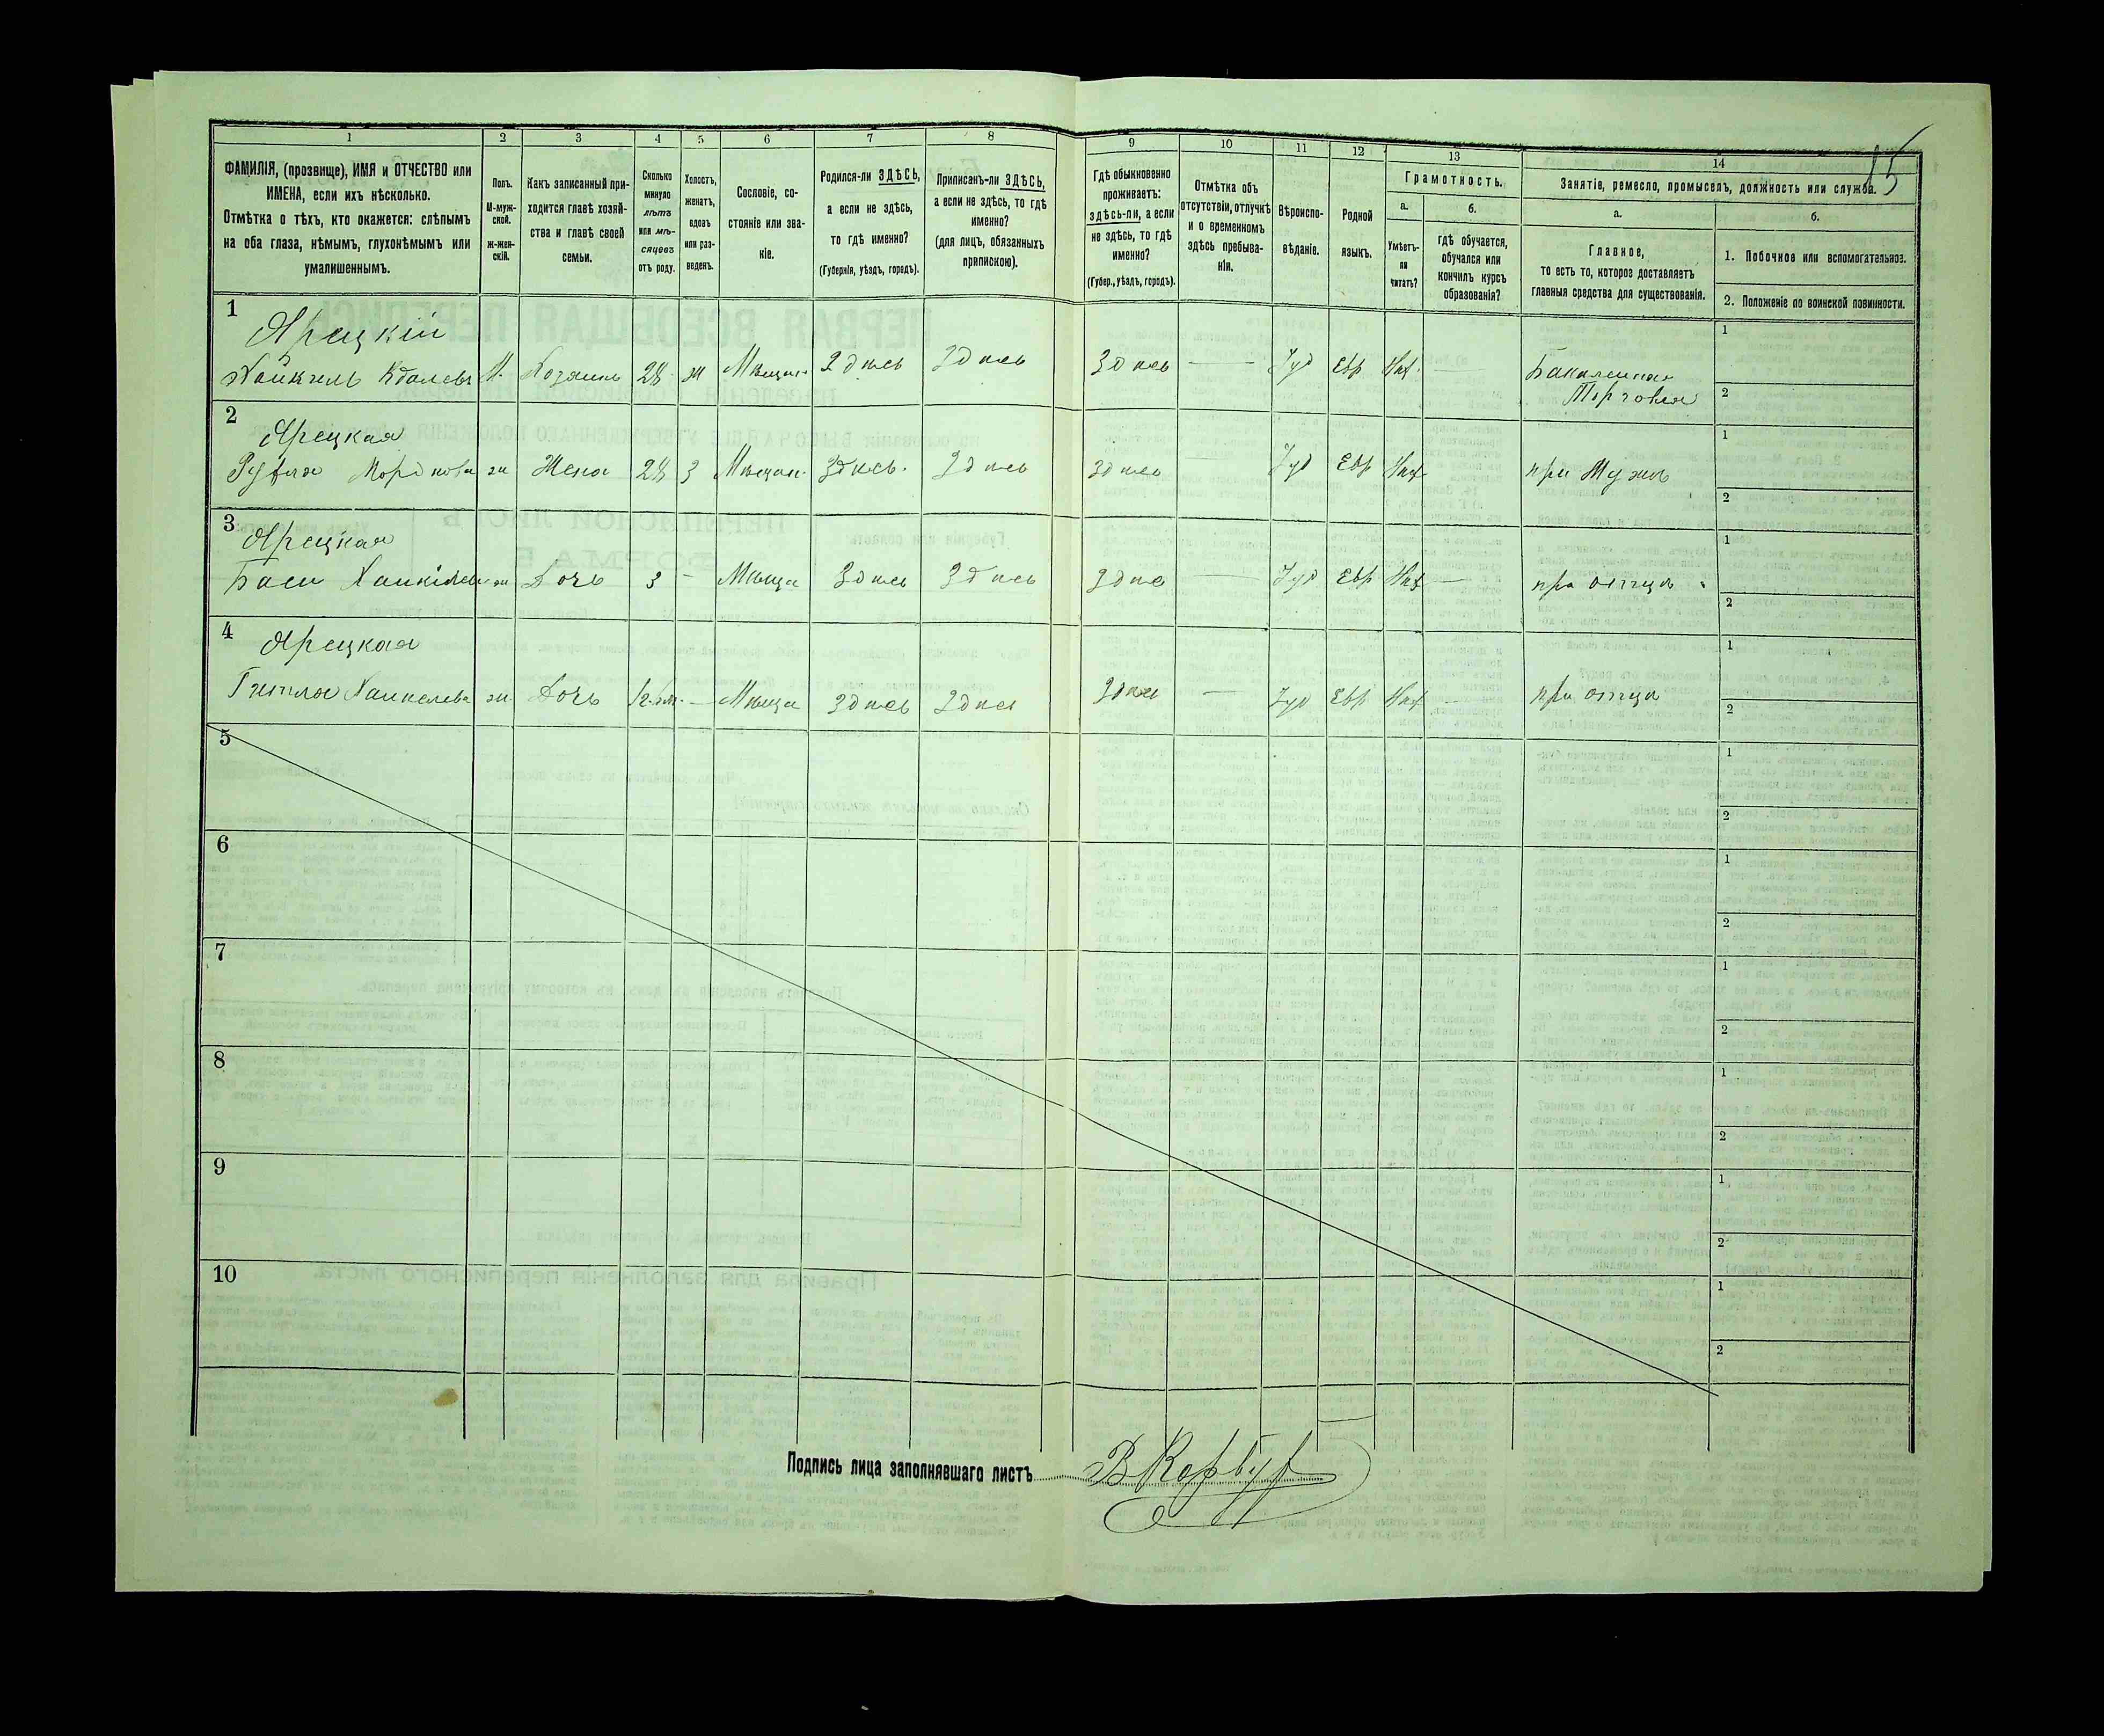 15
1 2 3 4 5 6 7 8 9 10 11 12 13 14
ФАМИЛІЯ, (прозвище), ИМЯ и ОТЧЕСТВО или
ИМЕНА, если ихъ нѣсколько.
Отмѣтка о тѣхъ, кто окажется: слѣпымъ
на оба глаза, нѣмымъ, глухонѣмымъ или
умалишеннымъ.
Полъ.
М-муж-
ской.
ж-жен-
скій.
Какъ записанный при-
ходится главѣ хозяй-
ства и главѣ своей
семьи.
Сколько
минуло
лѣтъ
или мѣ-
сяцевъ
отъ роду.
Холостъ,
женатъ,
вдовъ
или раз-
веденъ.
Сословіе, со-
стояніе или зва-
ніе.
Родился-ли ЗДѢСЬ,
а если не здѣсь,
то гдѣ именно?
(Губернія, уѣздъ, городъ).
Приписанъ-ли ЗДѢСЬ,
а если не здѣсь, то гдѣ
именно?
(для лицъ, обязанныхъ
припискою).
Гдѣ обыкновенно
проживаетъ:
здѣсь-ли, а если
не здѣсь, то гдѣ
именно?
(Губер., уѣздъ, городъ).
Отмѣтка объ
отсутствіи, отлучкѣ
и о временномъ
здѣсь пребыва-
ніи.
Вѣроиспо-
вѣданіе.
Родной
языкъ.
Грамотность.
а.
Умѣетъ-
ли
читать?
б.
гдѣ обучается,
обучался или
кончилъ курсъ
образованія?
Занятіе, ремесло, промыселъ, должность или служба.
а.
Главное,
то есть то, которое доставляетъ
главныя средства для существованія.
б.
1. Побочное или вспомогательное.
2. Положеніе по воинской повинности.
1 Ярецкій
М. Хозяинъ 28 ж Мѣщан. Здѣсь Здѣсь Здѣсь — Іуд Евр Нѣт — Бакалейная 1
Торговля 2
2 Ярецкая
ж Жена 28 З Мѣщан. Здѣсь. Здѣсь Здѣсь — Іуд Евр Нѣт при Мужѣ 1
2
3 Ярецкая
ж Дочь 3 — Мѣща Здѣсь Здѣсь Здѣс — Іуд Евр Нѣт — при отцѣ 1
2
4 Ярецкая
ж. Дочь — Мѣща Здѣсь Здѣсь Здѣс — Іуд Евр Нѣт — при отцѣ 1
2
5 1
2
6 1
2
7 1
2
8 1
2
9 1
2
10 1
2
Подпись лица заполнявшаго листъ